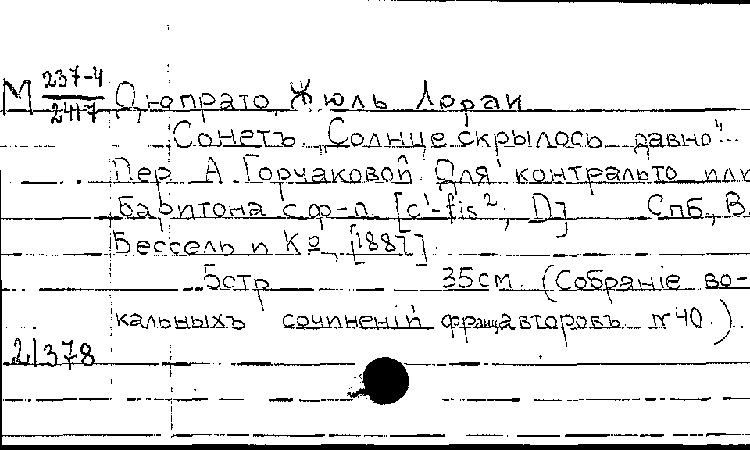 М 237-4/2417 Дюпрато, Жюль Лоран
Сонетъ „Солнце скрылось давно"...
Пер. А. Горчаковой. Для контральто или
баритона с ф-п. [c¹-fis²; D] Спб., В.
Бессель и Ко, [1887].
5 стр. 35 см. (Собранiе во-
кальныхъ сочиненiй франц. авторовъ. № 40.).
21378